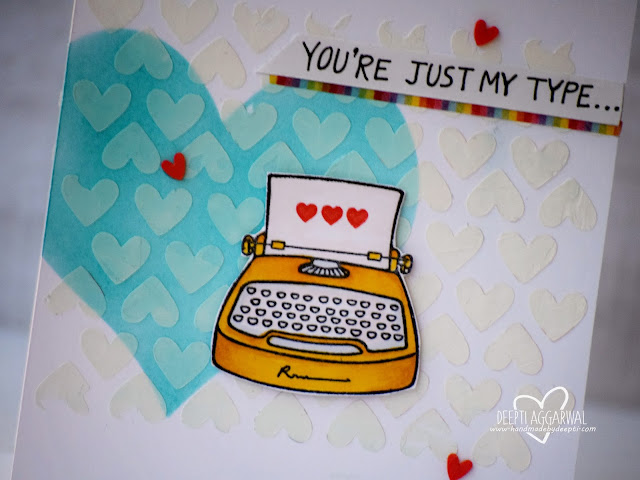 YOU'RE JUST MY TYPE...
DEEPTI AGGARWAL
www.handmadebydeepti.com